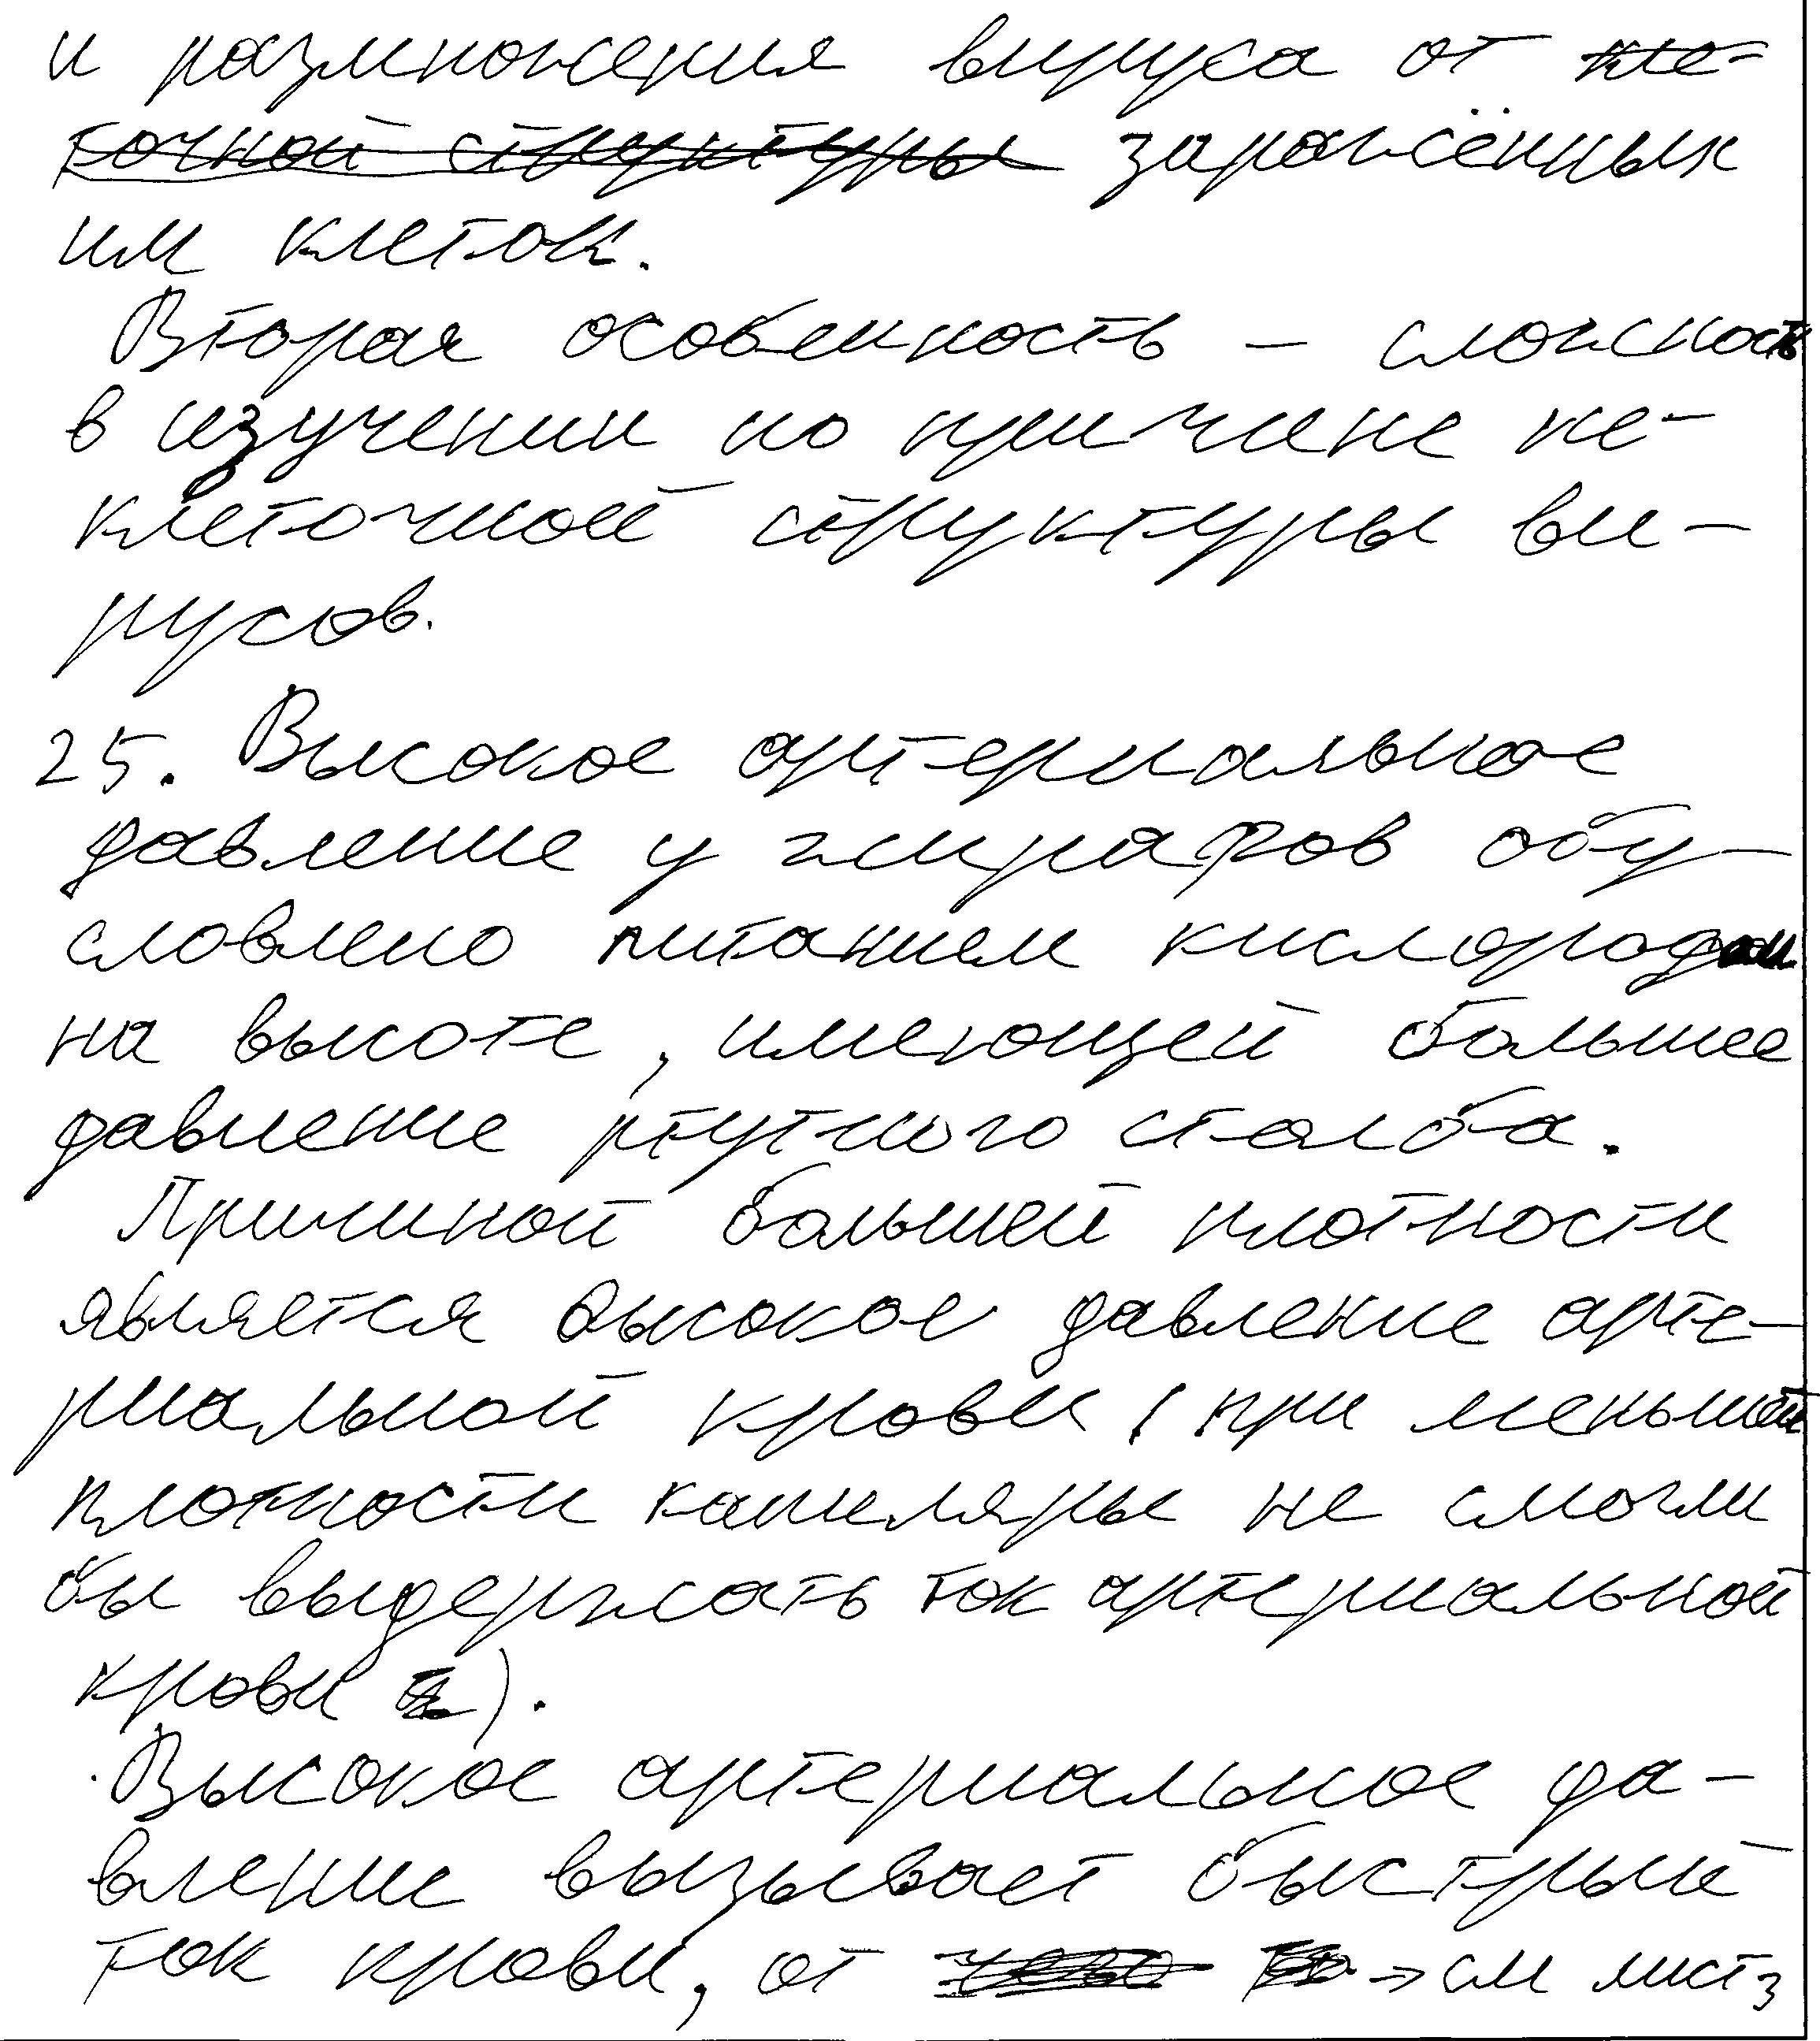 и размножения вируса от кле-
точной структуры заражённых
им клеток.
Вторая особенность – сложность
в изучении по причине не-
клеточной структуры ви-
русов.
25. Высокое артериальное
давление у жирафов обу-
словлено питанием кислородом
на высоте, имеющей большее
давление ртутного столба.
Причиной большей плотности
является высокое давление арте-
риальной крови (при меньшей
плотности капиляры не смогли
бы выдержать ток артериальной
крови).
Высокое артериальное да-
вление вызывает быстрый
ток крови, от чего → см лист 3